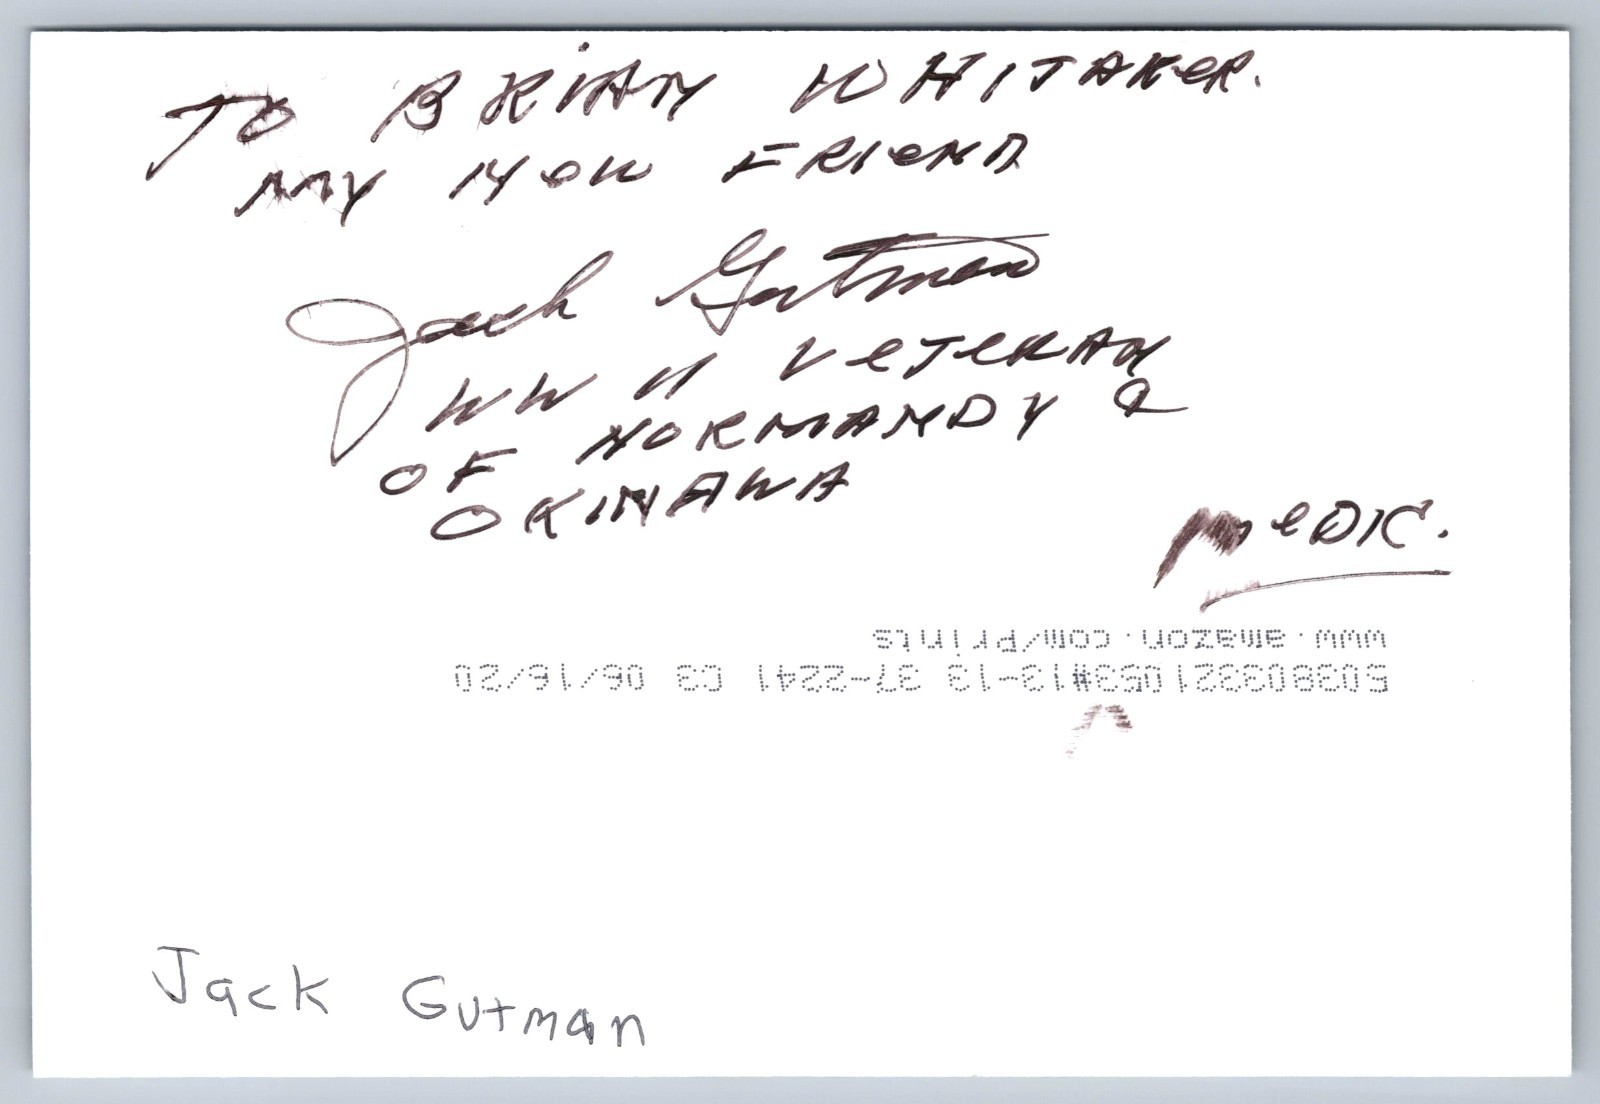 TO BRIAN WHITAKER.
MY NEW FRIEND
Jack Gutman
WW II VETERAN
OF NORMANDY &
OKINAWA
MEDIC.
503803321053#13-13 37-2241 C3 06/16/20
www.amazon.com/Prints
Jack Gutman